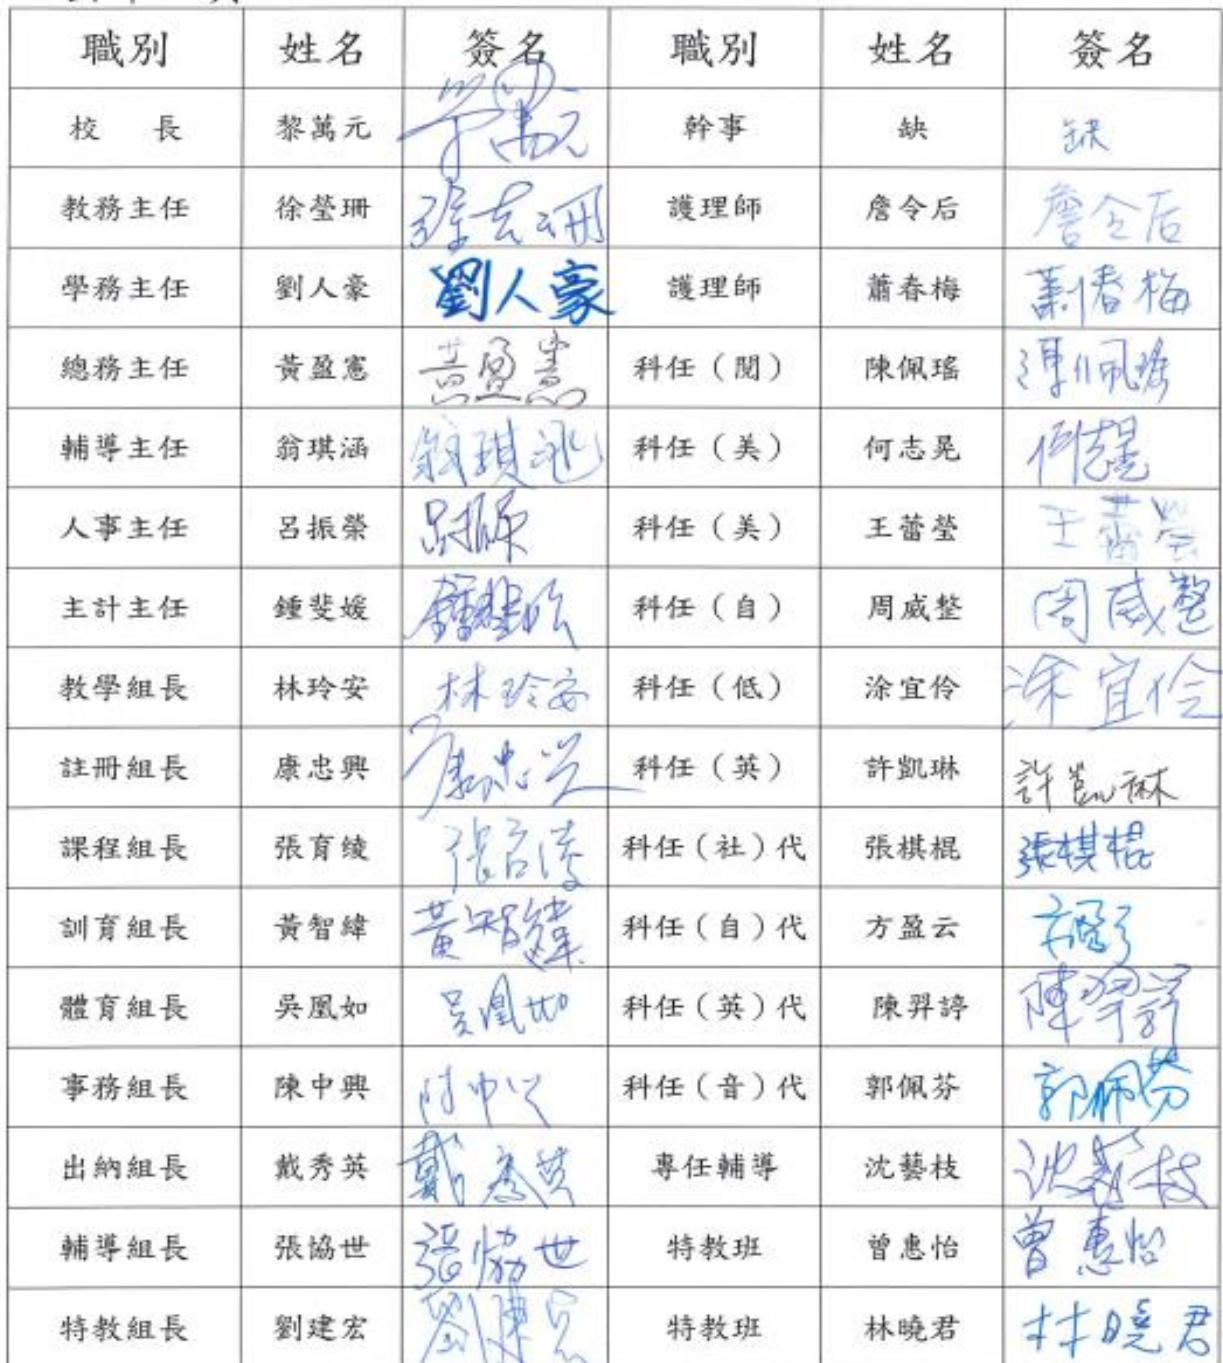 職別 姓名 簽名 職別 姓名 簽名
校 長 黎萬元 幹事 缺 缺
教務主任 徐瑩珊 徐瑩珊 護理師 詹令后 詹令后
學務主任 劉人豪 劉人豪 護理師 蕭春梅 蕭春梅
總務主任 黃盈憲 黃盈憲 科任（閱） 陳佩瑤 陳佩瑤
輔導主任 翁琪涵 翁琪涵 科任（美） 何志晃 何志晃
人事主任 呂振榮 呂振榮 科任（美） 王蕾瑩 王蕾瑩
主計主任 鍾斐媛 鍾斐媛 科任（自） 周威整 周威整
教學組長 林玲安 林玲安 科任（低） 涂宜伶 涂宜伶
註冊組長 康忠興 康忠興 科任（英） 許凱琳 許凱琳
課程組長 張育綾 張育綾 科任（社）代 張棋棍 張棋棍
訓育組長 黃智緯 黃智緯 科任（自）代 方盈云 方盈云
體育組長 吳凰如 吳凰如 科任（英）代 陳羿諪 陳羿諪
事務組長 陳中興 陳中興 科任（音）代 郭佩芬 郭佩芬
出納組長 戴秀英 戴秀英 專任輔導 沈藝枝 沈藝枝
輔導組長 張協世 張協世 特教班 曾惠怡 曾惠怡
特教組長 劉建宏 劉建宏 特教班 林曉君 林曉君